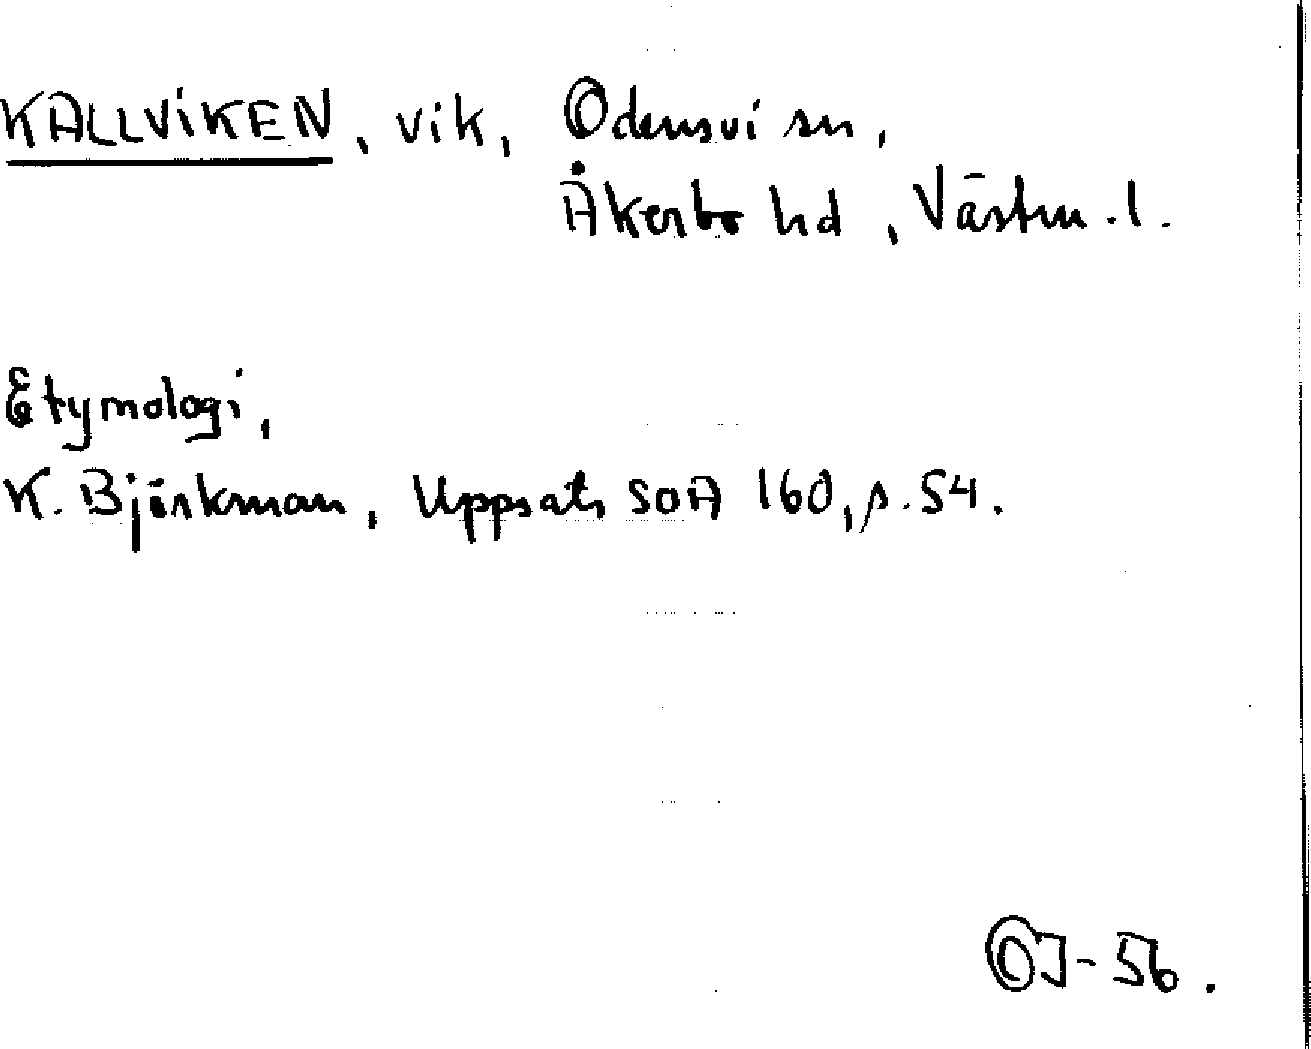 KALLVIKEN, vik, Odensvi sn,
Åkerbo hd, Västm.l.
Etymologi,
K. Björkman, Uppsats SOA 160, p. 54.
OJ-56.